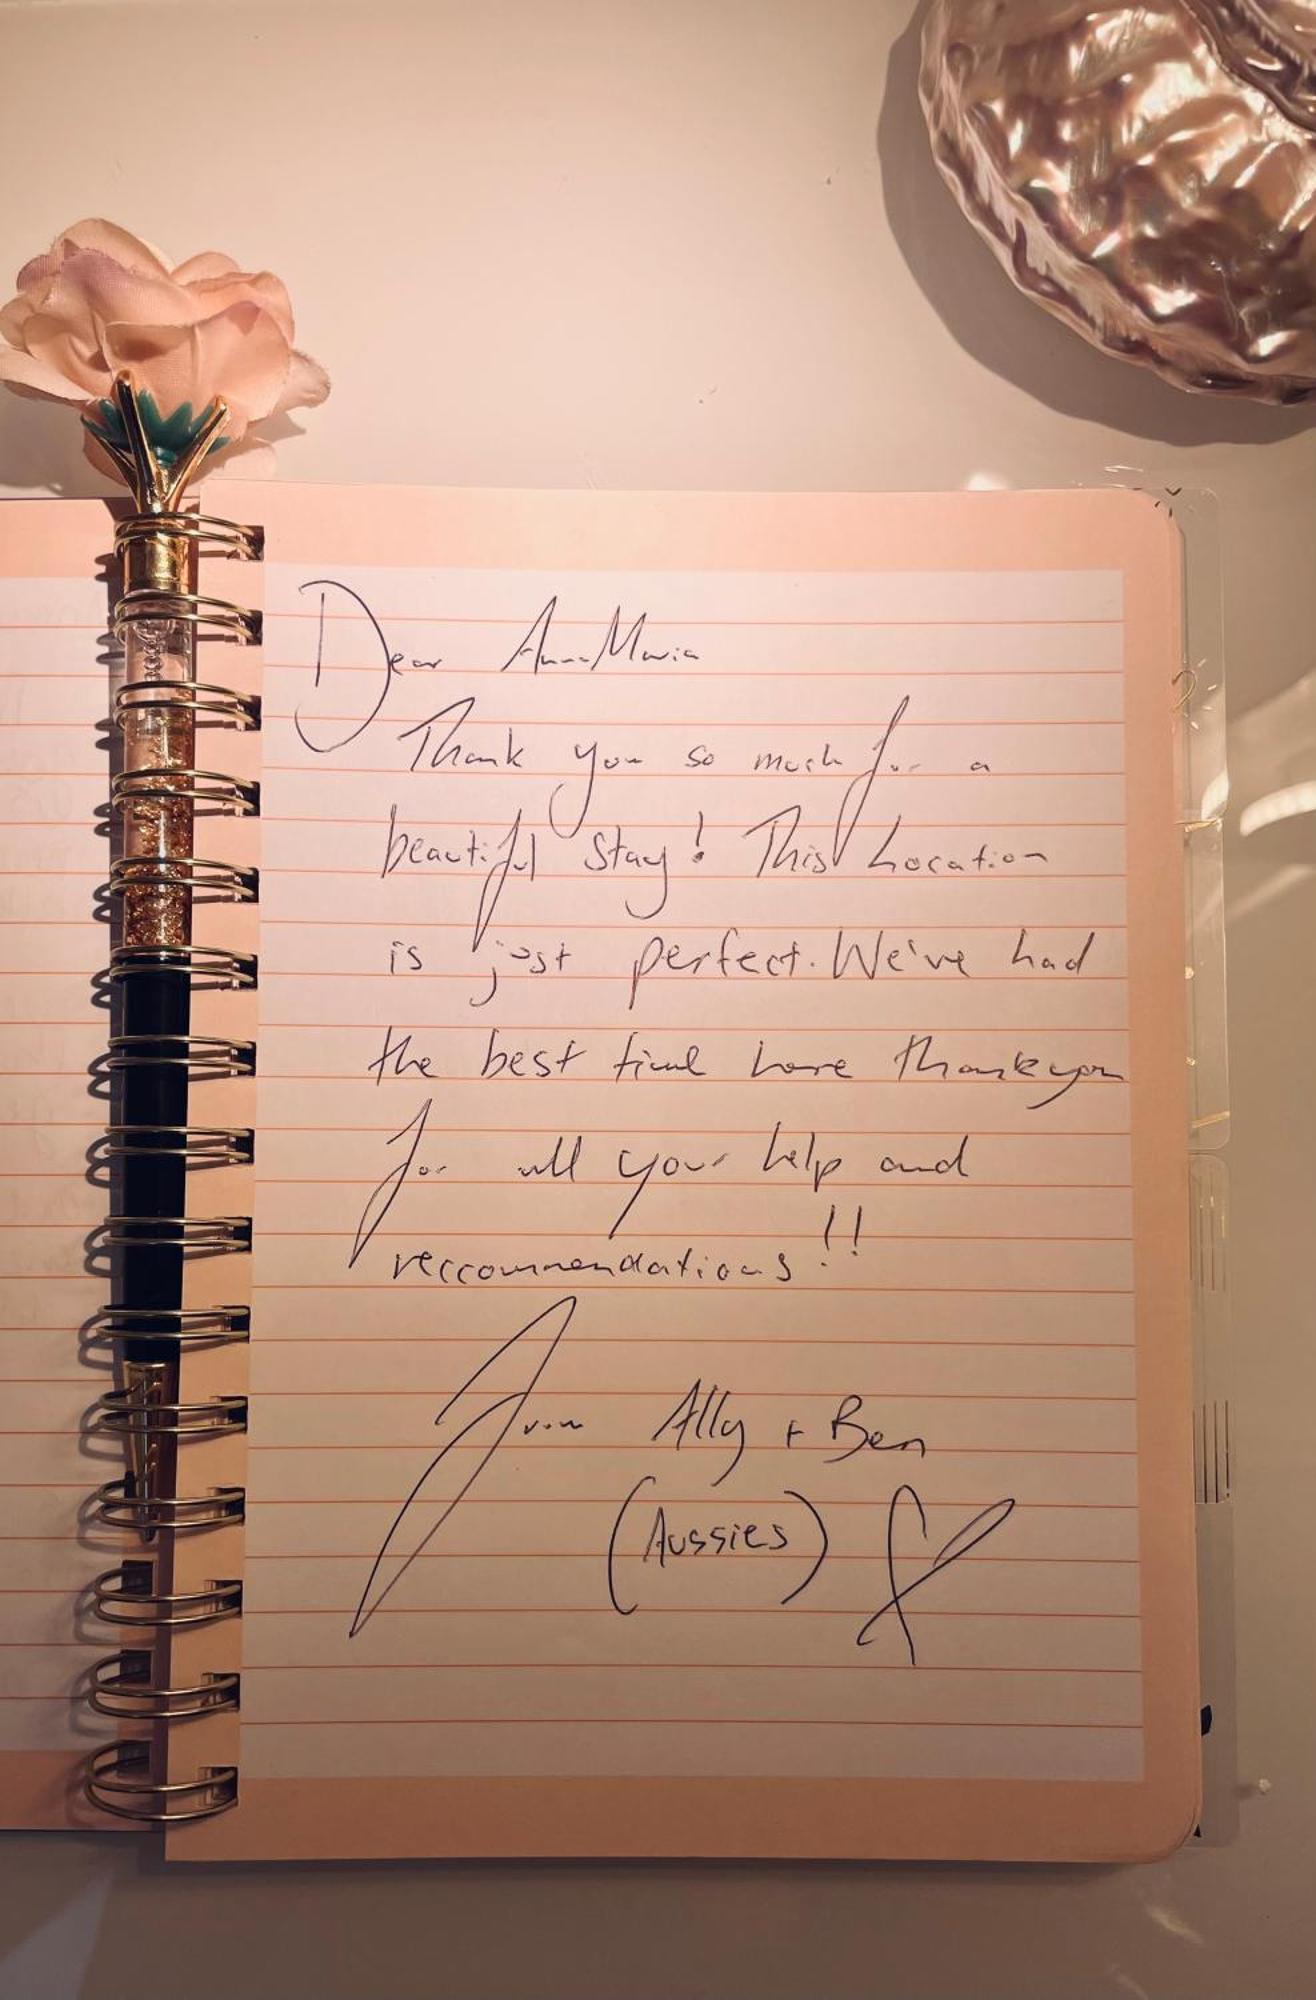 Dear AnnaMaria
Thank you so much for a
beautiful stay! This Location
is just perfect. We've had
the best time here thankyou
for all your help and
reccommendations!!
From Ally + Ben
(Aussies)